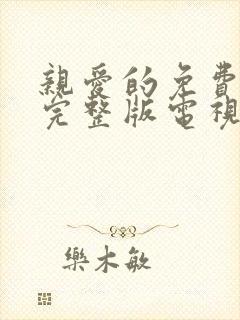 親愛的免費
完整版電視
樂木敏